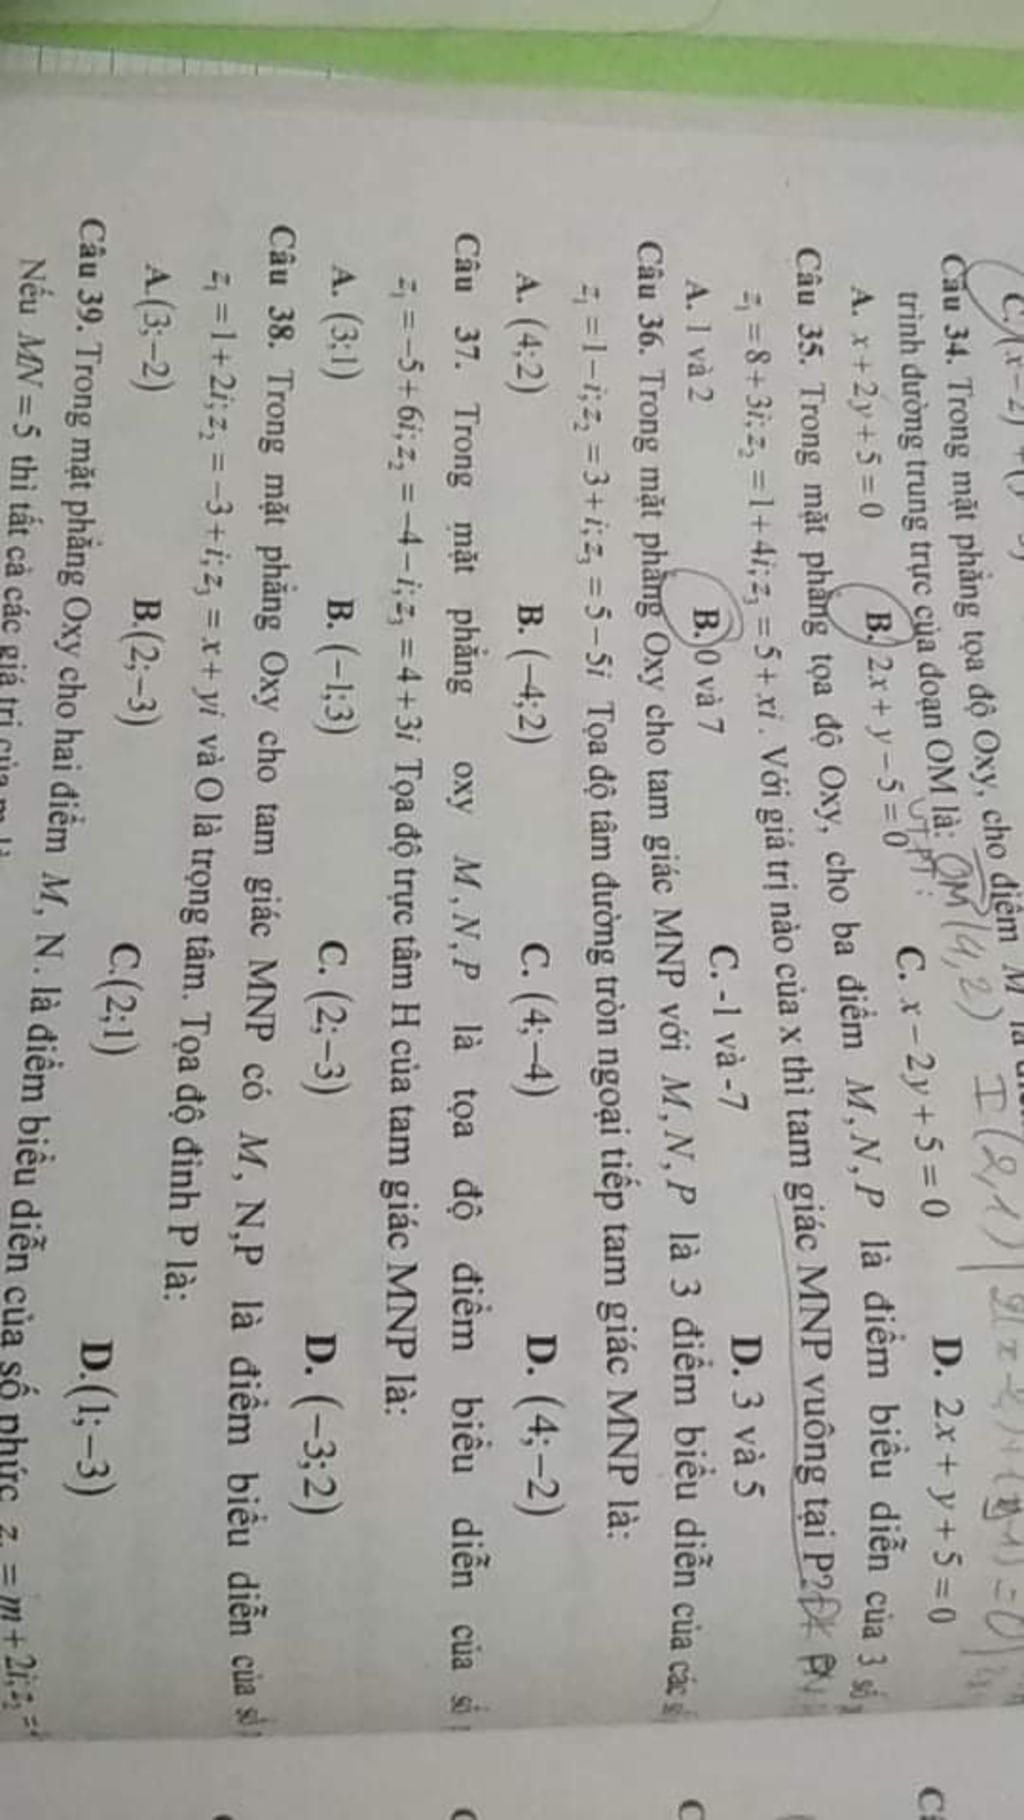 Câu 34. Trong mặt phẳng tọa độ Oxy, cho điểm M là
trình đường trung trực của đoạn OM là: OM(4,2) I(2,1)
A. x + 2y + 5 = 0 B. 2x + y − 5 = 0 C. x − 2y + 5 = 0 D. 2x + y + 5 = 0
Câu 35. Trong mặt phẳng tọa độ Oxy, cho ba điểm M, N, P là điểm biểu diễn của 3 số
z₁ = 8 + 3i; z₂ = 1 + 4i; z₃ = 5 + xi. Với giá trị nào của x thì tam giác MNP vuông tại P?
A. 1 và 2 B. 0 và 7 C. -1 và -7 D. 3 và 5
Câu 36. Trong mặt phẳng Oxy cho tam giác MNP với M, N, P là 3 điểm biểu diễn của các
z₁ = 1 − i; z₂ = 3 + i; z₃ = 5 − 5i Tọa độ tâm đường tròn ngoại tiếp tam giác MNP là:
A. (4;2) B. (−4;2) C. (4;−4) D. (4;−2)
Câu 37. Trong mặt phẳng oxy M, N, P là tọa độ điểm biểu diễn của số
z₁ = −5 + 6i; z₂ = −4 − i; z₃ = 4 + 3i Tọa độ trực tâm H của tam giác MNP là:
A. (3;1) B. (−1;3) C. (2;−3) D. (−3;2)
Câu 38. Trong mặt phẳng Oxy cho tam giác MNP có M, N,P là điểm biểu diễn của số
z₁ = 1 + 2i; z₂ = −3 + i; z₃ = x + yi và O là trọng tâm. Tọa độ đỉnh P là:
A.(3;−2) B.(2;−3) C.(2;1) D.(1;−3)
Câu 39. Trong mặt phẳng Oxy cho hai điểm M, N. là điểm biểu diễn của số phức z₁ = m + 2i; z₂ =
Nếu MN = 5 thì tất cả các giá trị của m là